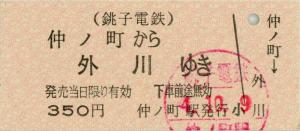 (銚子電鉄)
仲ノ町から
外川ゆき
発売当日限り有効 下車前途無効
350円 仲ノ町駅発行 小 川
仲ノ町→
外
4.10.-9